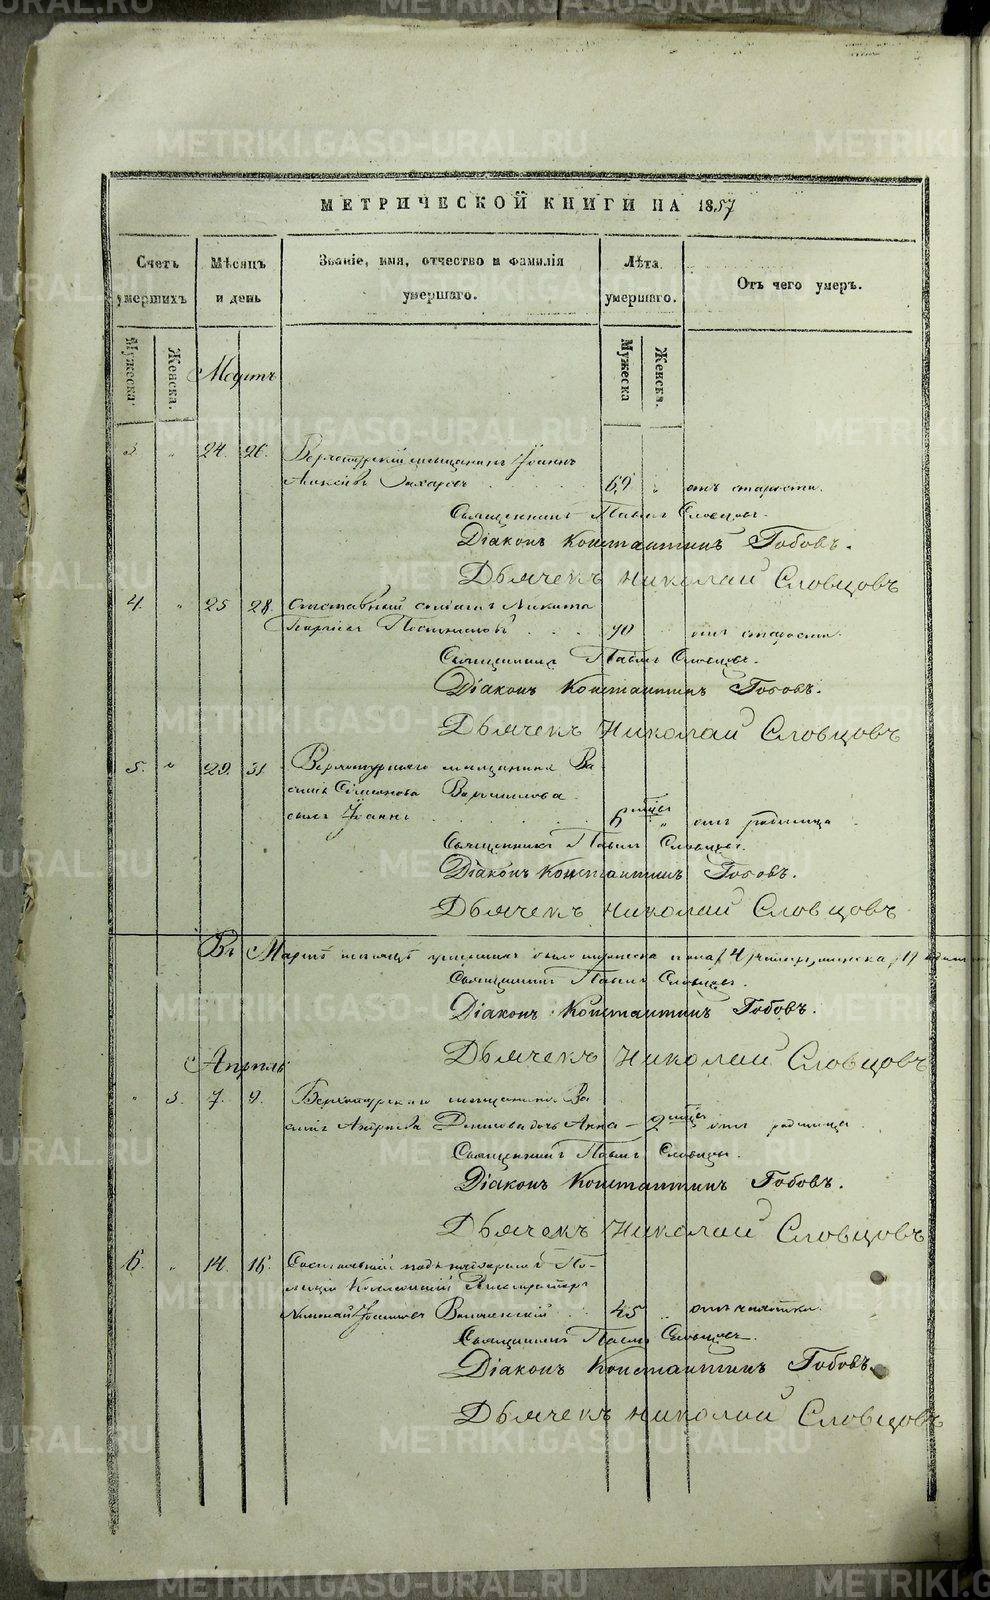 МЕТРИЧЕСКОЙ КНИГИ НА 1857
Счетъ умершихъ
Мѣсяцъ и день
Званіе, имя, отчество и фамилія умершаго.
Лѣта умершаго.
Отъ чего умеръ.
Мужеска.
Женска.
Мартъ
Мужеска
Женска.
3. " 24. 26. Верхотурскій мещанинъ Іоаннъ
Алексѣевъ Захаровъ 69 " отъ старости.
Священникъ Павелъ Словцовъ.
Діаконъ Константинъ Гобовъ.
Дьячекъ Николай Словцовъ
4. " 25 28. Отставный солдатъ Никита
Георгіевъ 70 отъ старости.
Священникъ Павелъ Словцовъ.
Діаконъ Константинъ Гобовъ.
Дьячекъ Николай Словцовъ
5. " 29. 31. Верхотурскаго мещанина Ва
силія Симеонова
сынъ Іоаннъ 6 мѣся " отъ родимца
Священникъ Павелъ Словцовъ.
Діаконъ Константинъ Гобовъ.
Дьячекъ Николай Словцовъ
Въ Мартѣ мѣсяцѣ умершихъ было мужеска пола 4 женска
Священникъ Павелъ Словцовъ.
Діаконъ Константинъ Гобовъ.
Дьячекъ Николай Словцовъ
Апрѣль
" 3. 7. 9. Верхотурскаго мещанина Ва
силія Андреева дочь Анна 2 мѣся отъ родимца.
Священникъ Павелъ Словцовъ.
Діаконъ Константинъ Гобовъ.
Дьячекъ Николай Словцовъ
6. " 14. 16.
Коллежскій Регистраторъ
Николай 45 " отъ чахотки.
Священникъ Павелъ Словцовъ.
Діаконъ Константинъ Гобовъ.
Дьячекъ Николай Словцовъ
METRIKI.GASO-URAL.RU